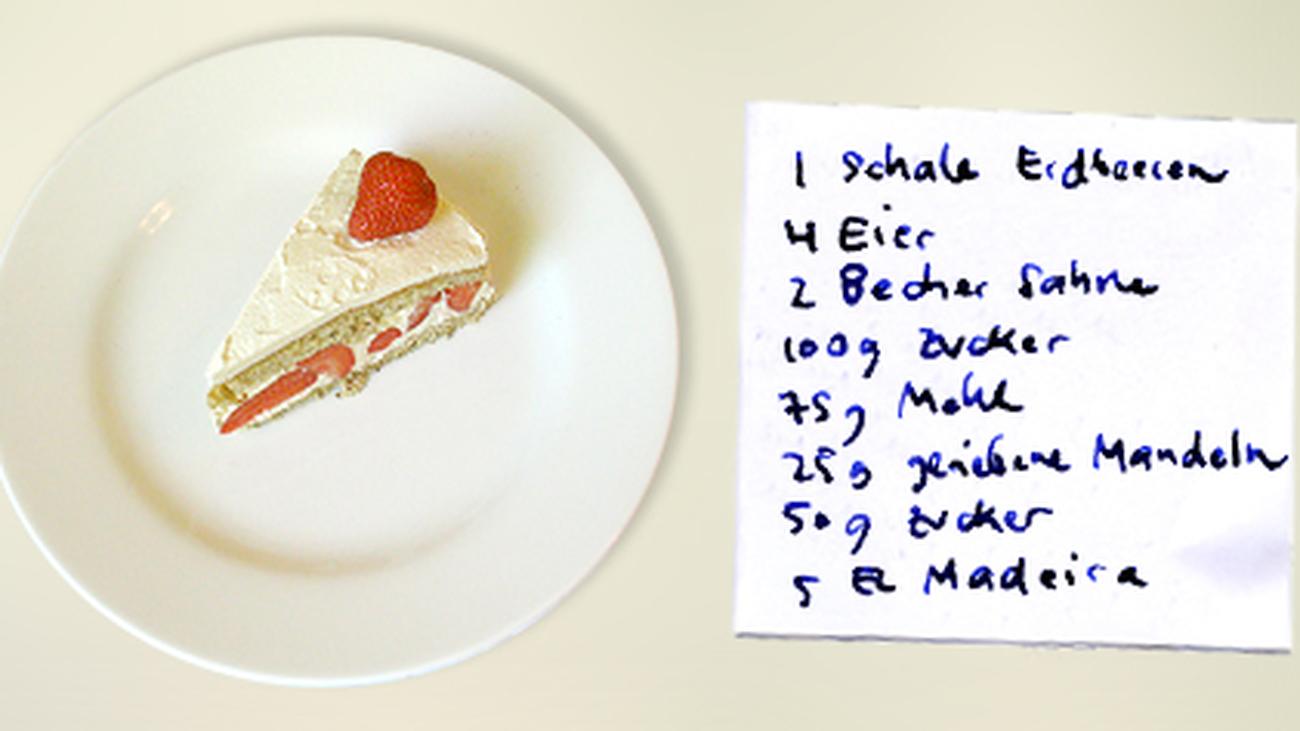 1 Schale Erdbeeren
4 Eier
2 Becher Sahne
100g Zucker
75g Mehl
25g geriebene Mandeln
50g Zucker
5 EL Madeira